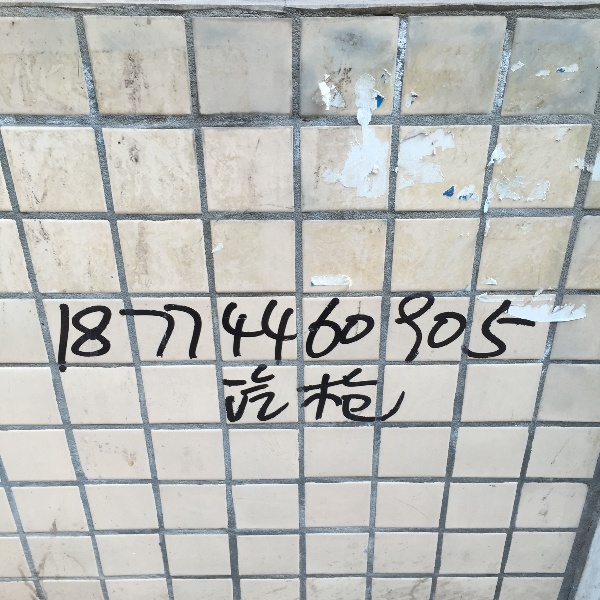 18774460905
讫枪